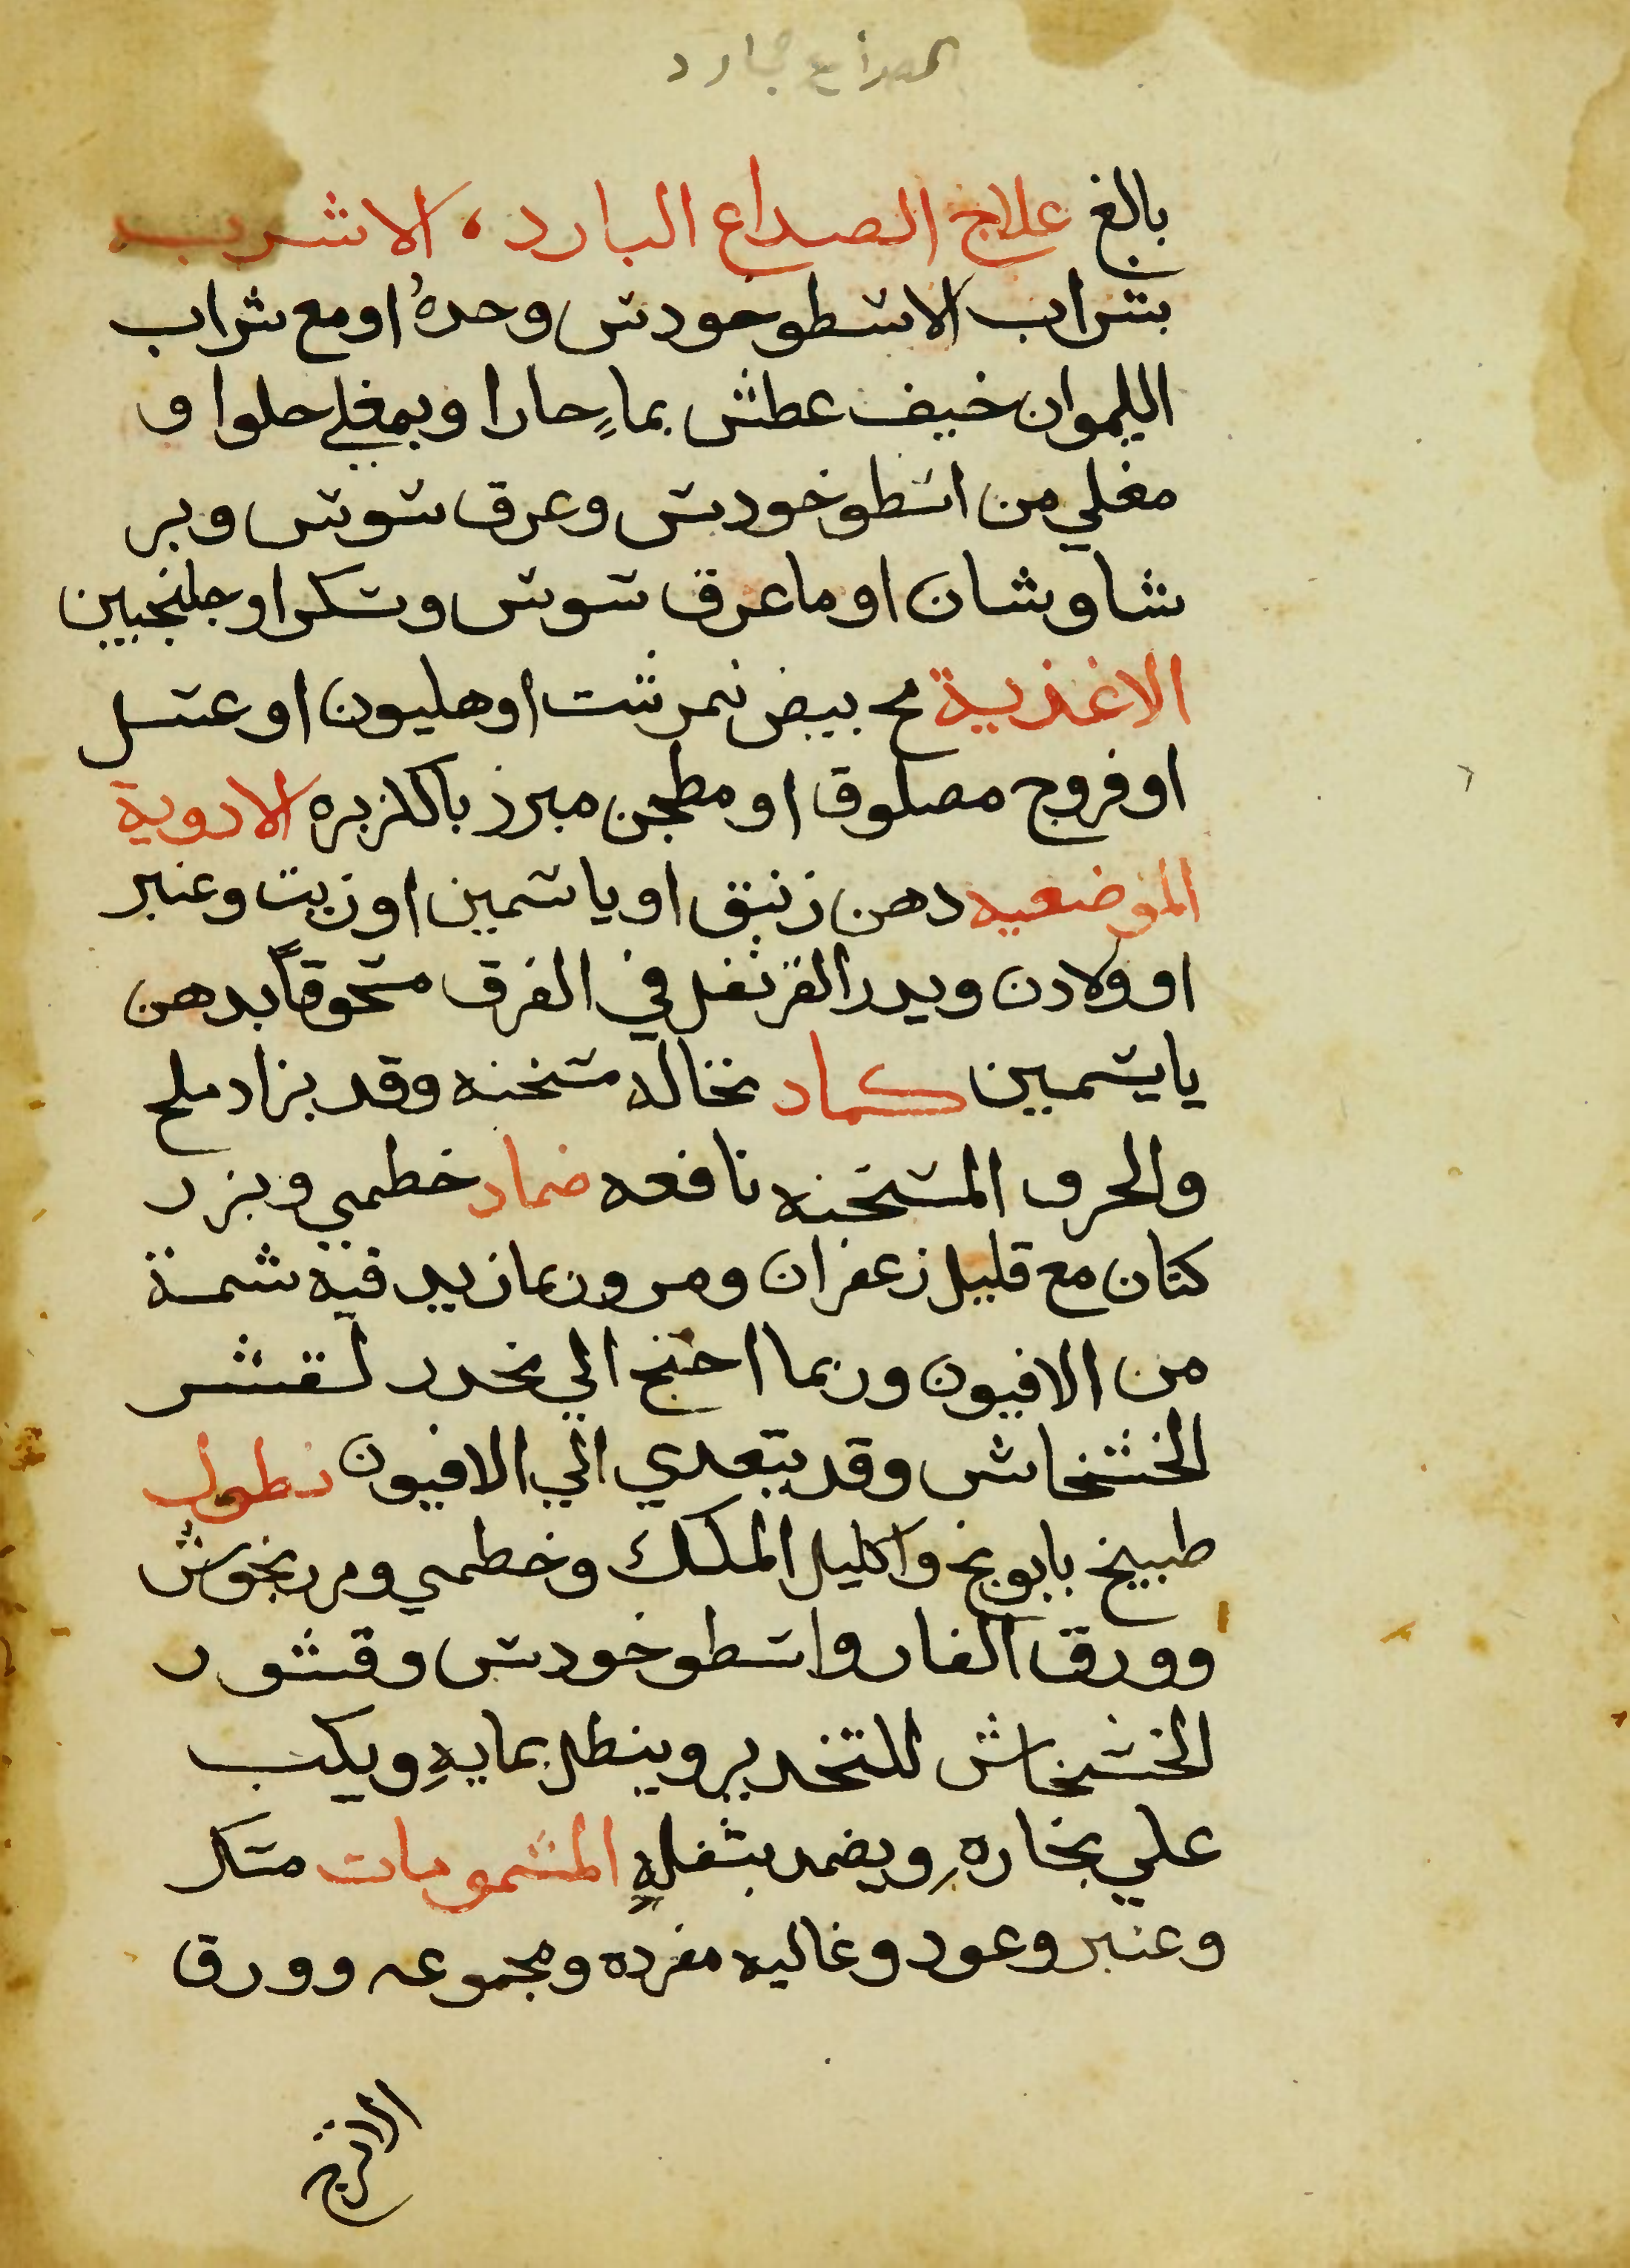 الصداع بارد
بالغ علاج الصداع البارد، الاشربه
بشراب الاسطوخودس وحدهُ او مع شراب
الليموان خيف عطش بماٍ حارا وبمغلي حلوا و
مغلي من اسطوخودس وعرق سوس وبر
شاوشان او ما عرق سوس وسكر او جلنجبين
الاغذية مح بيض نمرشت او هليون او عسل
او فروج مصلوق او مطجن مبرز بالكزبره الادوية
الموضعيه دهن زنبق او ياسمين او زيت وعنبر
او ولادن ويدر القرنفل في الفرق مسحوقاً بدهن
ياسمين كماد نخاله مسخنه وقد يزاد ملح
والخرق المسخنه نافعه ضماد خطمي وبزر
كتان مع قليل زعفران ومر وربما زيد فيه شمة
من الافيون وربما احتج الي تخدر لقشر
الخشخاش وقد يتعدي الي الافيون نطول
طبيخ بابونج واكليل الملك وخطمي ومرزنجوش
وورق الغار واسطوخودس وقشور
الخشخاش للتخدير وينطل بمايهِ ويكب
علي بخارهِ ويضمد بثفلهِ المشمومات مسك
وعنبر وعود وغاليه مفرده ومجموعه وورق
الاترج